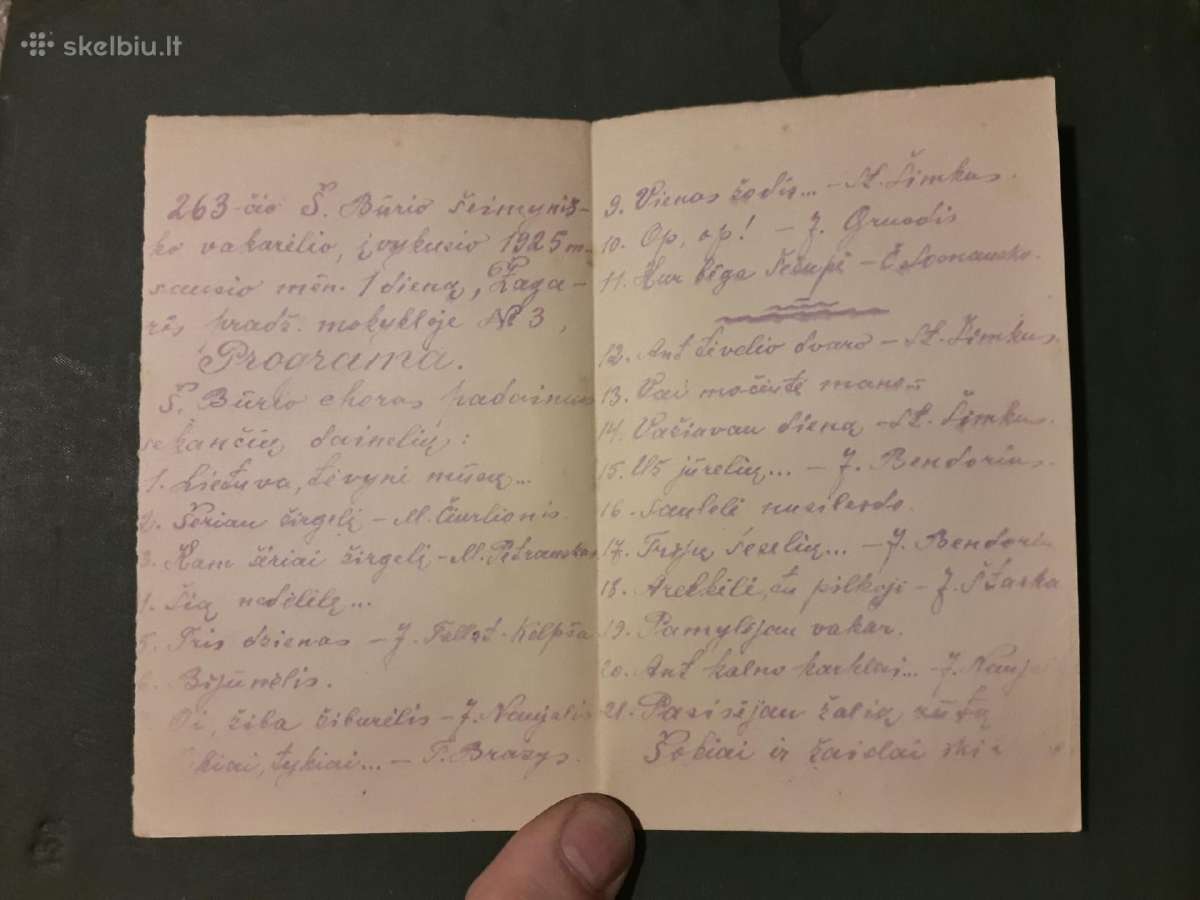 skelbiu.lt
263-čio Š. Būrio šeimyniš-
ko vakarėlio, įvykusio 1925 m.
sausio mėn. 1 dieną, Žaga-
rės pradž. mokykloje № 3,
Programa.
Š. Būrio choras padainuos
sekančių dainelių:
1. Lietuva, tėvynė mūsų...
2. Šėriau žirgelį – M. Čiurlionis.
3. Kam šėriai žirgelį – M. Petrauskas
4. Šią nedėlėlę...
5. Tris dzienas – J. Tallat-Kelpša
6. Bijūnėlis.
Oi, žiba žiburėlis – J. Naujalis
kiai, tykiai... – T. Brazys.
9. Vienas žodis... – St. Šimkus.
10. Op, op! – J. Gruodis
11. Kur bėga Šešupė – Č.
12. Ant tėvelio dvaro – St. Šimkus.
13. Vai močiutė mano
14. Važiavau dieną – St. Šimkus.
15. Už jūrelių... – J. Bendorius.
16. Saulelė nusileido.
17. Trijų seselių... – J. Bendoriu
18. tu pilkoji – J. Štarka
19. Pamylėjau vakar.
20. Ant kalno karklai... – J. Nauja
21. Pasisėjau žalią rūtą
Šokiai ir žaidai